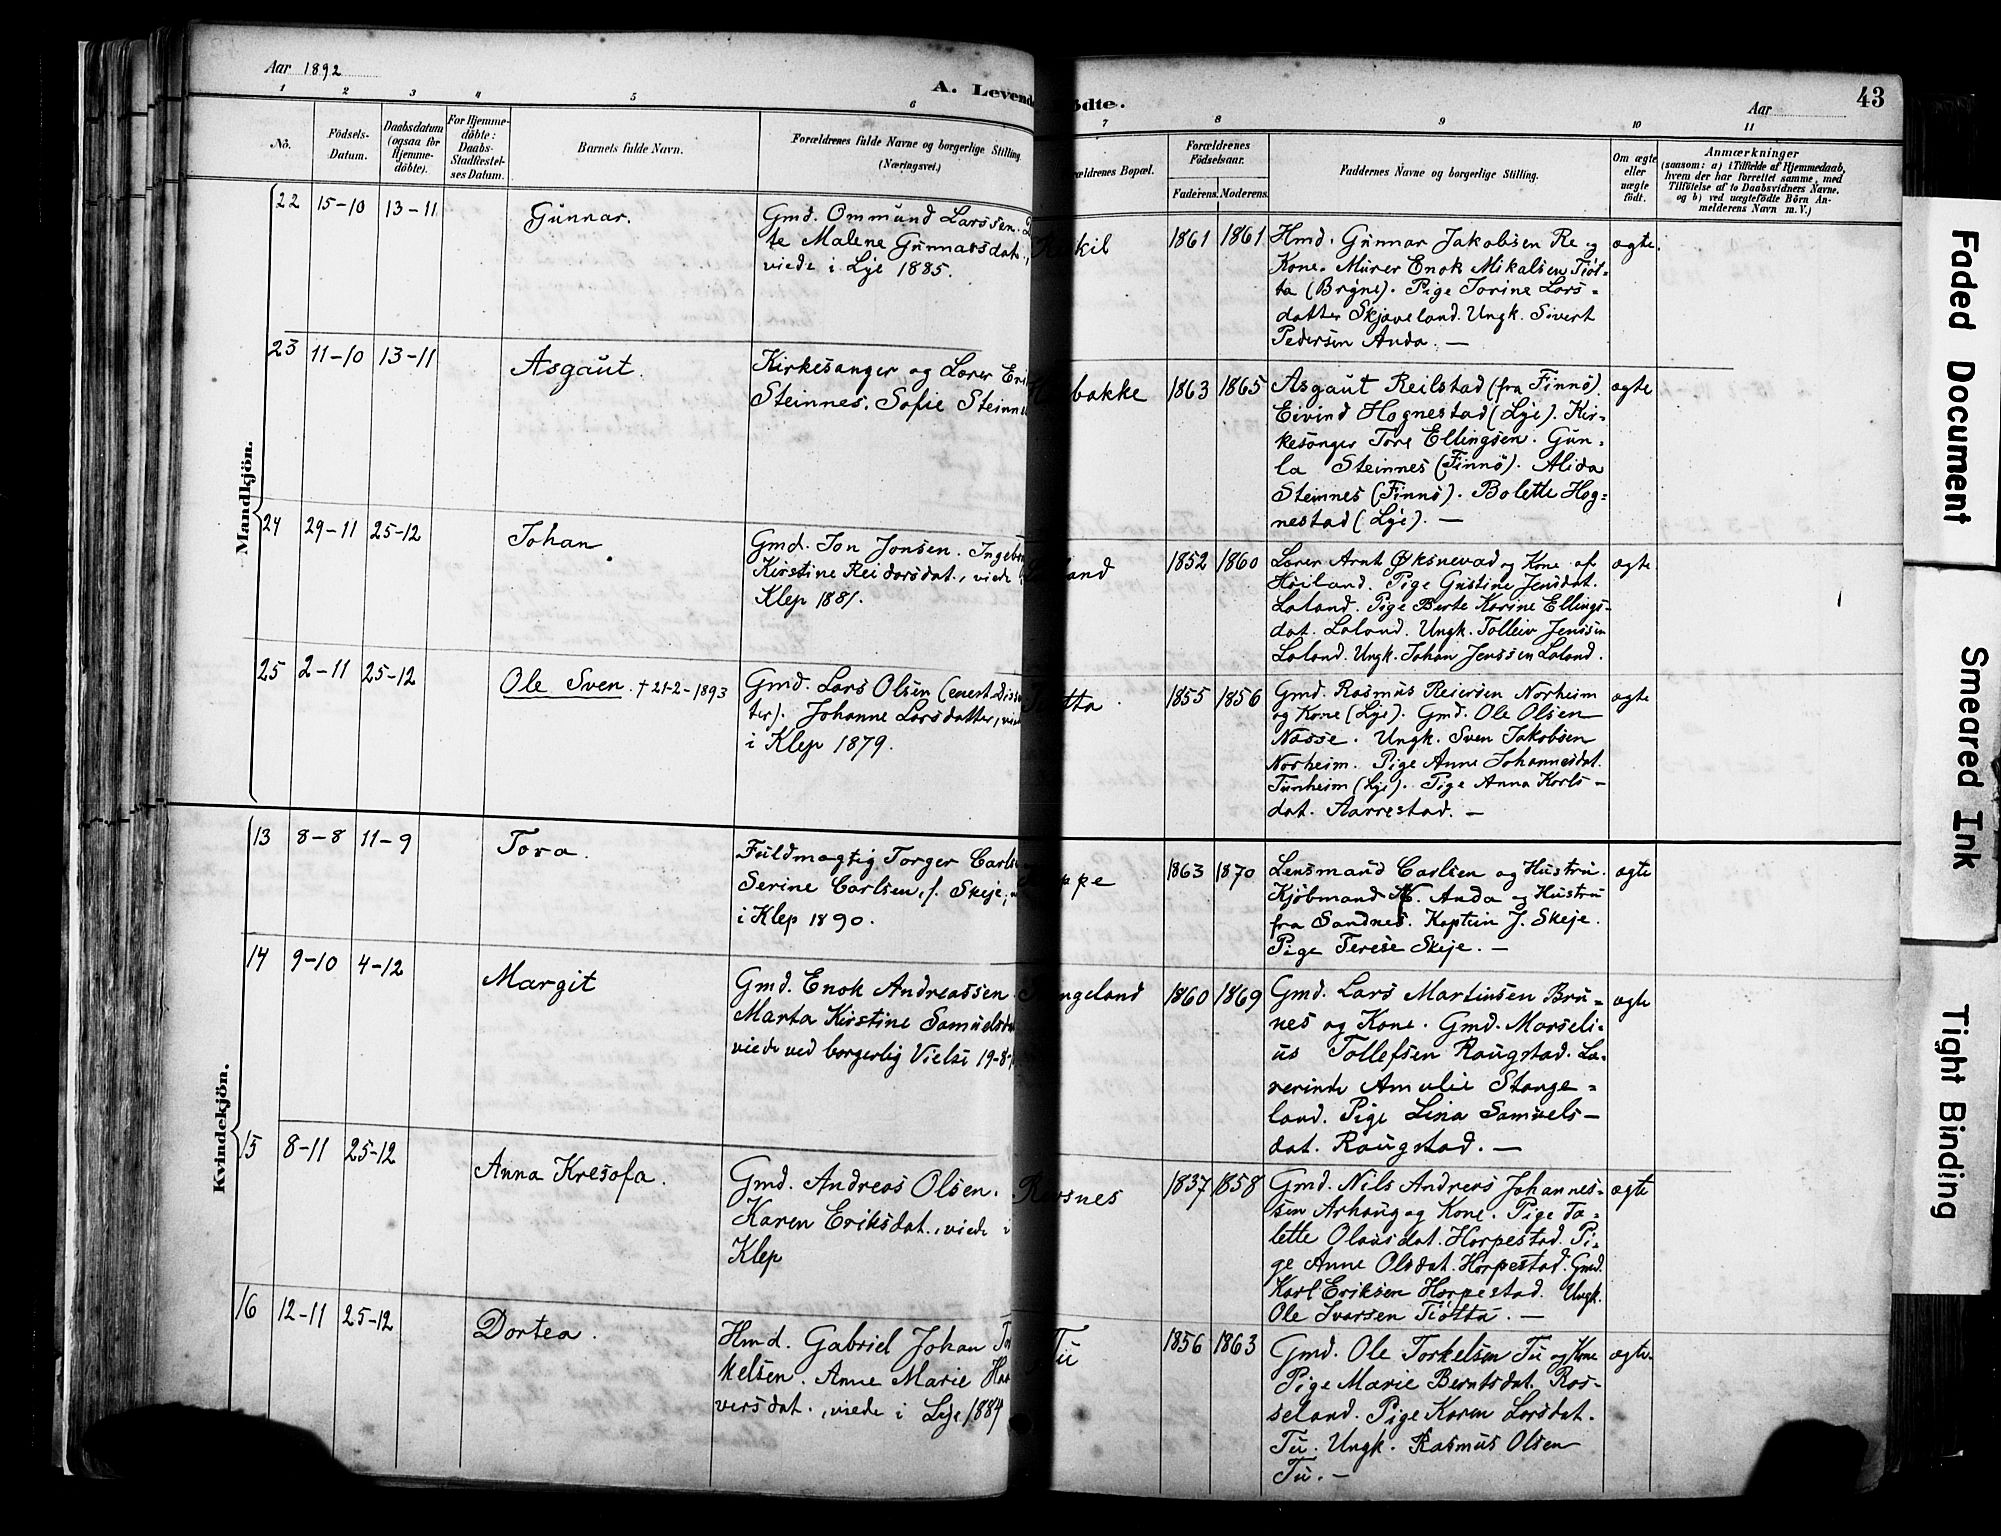 Aar 1892
A. Levende
ødte.
Aar
43
1 2 3 4 5 6 7 8 9 10 11
No.
Födsels-
Datum.
Daabsdatum
(ogsaa for
Hjemme-
döbte).
For Hjemme-
döbte:
Daabs-
Stadfæstel-
ses Datum.
Barnets fulde Navn.
Forældrenes fulde Navne og borgerlige Stilling
(Næringsvei.)
ældrenes Bopæl.
Forældrenes
Födselsaar.
Faderens. Moderens.
Faddernes Navne og borgerlige Stilling.
Om ægte
eller
uægte
födt.
Anmærkninger
(saasom: a) i Tilfælde af Hjemmedaab,
hvem der har forrettet samme, med
Tilföielse af to Daabsvidners Navne.
og b) ved uægtefödte Börn An-
melderens Navn m. V.)
Mandkjön.
22 15-10 13-11 Gunnar.
Gmd. Ommund Larssen.
te Malene Gunnarsdat.,
viede i Lye 1885.
kil
1861 1861
Hmd. Gunnar Jakobsen Re og
Kone. Murer Enok Mikalsen Tiöt-
ta (Bryne). Pige Torine Lars-
datter Skjæveland. Ungk. Sivert
Pedersen Anda. —
ægte.
23 11-10 13-11 Asgaut.
Kirkesanger og Lærer
Steinnes. Sofie Steinn
bakke
1863 1865
Asgaut Reilstad (fra Finnö).
Eivind Hognestad (Lye). Kir-
kesanger Tore Ellingsen. Gun-
la Steinnes (Finnö). Alida
Steinnes (Finnö). Bolette Hog-
nestad (Lye). —
ægte
24 29-11 25-12 Johan
Gmd. Jon Jonsen. Ingeb
Kirstine Reidarsdat., viede
Klep 1881.
land
1852 1860
Lærer Arnt Øksnevad og Kone af
Höiland. Pige Gustine Jensdat.
Laland. Pige Berte Karine Ellings-
dat. Laland. Ungk. Tolleiv Jenssen
Laland. Ungk. Johan Jenssen Laland.
ægte
25 2-11 25-12 Ole Sven. † 21-2-1893
Gmd. Lars Olsen (
ter). Johanne Larsdatter, vie
i Klep 1879.
tta.
1855 1856
Gmd. Rasmus Reiersen Norheim
og Kone (Lye). Gmd. Ole Olsen
Næsse. Ungk. Sven Jakobsen
Norheim. Pige Anne Johannesdat.
Tunheim (Lye). Pige Anna Karls-
dat. Aarrestad. —
ægte
Kvindekjön.
13 8-8 11-9 Tora.
Fuldmægtig Torger Carls
Serine Carlsen, f. Skeje,
i Klep 1890.
ppe
1863 1870
Lensmand Carlsen og Hustru.
Kjöbmand K. Anda og Hustru
fra Sandnes. Kaptein J. Skeje.
Pige Terese Skeje. —
ægte
14 9-10 4-12 Margit
Gmd. Enok Andreassen.
Marta Kirstine Samuelsda
viede ved borgerlig Vielse 19-8
ngeland
1860 1869
Gmd. Lars Martinsen Bru-
nes og Kone. Gmd. Marseli-
us Tollefsen Raugstad. Læ-
rerinde Amalie Stange-
land. Pige Lina Samuels-
dat. Raugstad. —
ægte
15 8-11 25-12 Anna Kresofa.
Gmd. Andreas Olsen.
Karen Eriksdat., viede i
Klep
snes
1837 1858
Gmd. Nils Andreas Johannes-
sen Arhaug og Kone. Pige Ta-
lette Olausdat. Horpestad. Pi-
ge Anne Olsdat. Horpestad. Gmd.
Karl Eriksen Horpestad. Ungk.
Ole Ivarsen Tiötta. —
ægte
16 12-11 25-12 Dortea.
Hmd. Gabriel Johan
kelsen. Anne Marie
versdat., viede i Lye 1884
Tu
1856 1863
Gmd. Ole Torkelsen Tu og Kone
Pige Marie Berntsdat. Ros-
seland. Pige Karen Larsdat.
Tu. Ungk. Rasmus Olsen
Tu. —
ægte.
Faded Document
Smeared Ink
Tight Binding